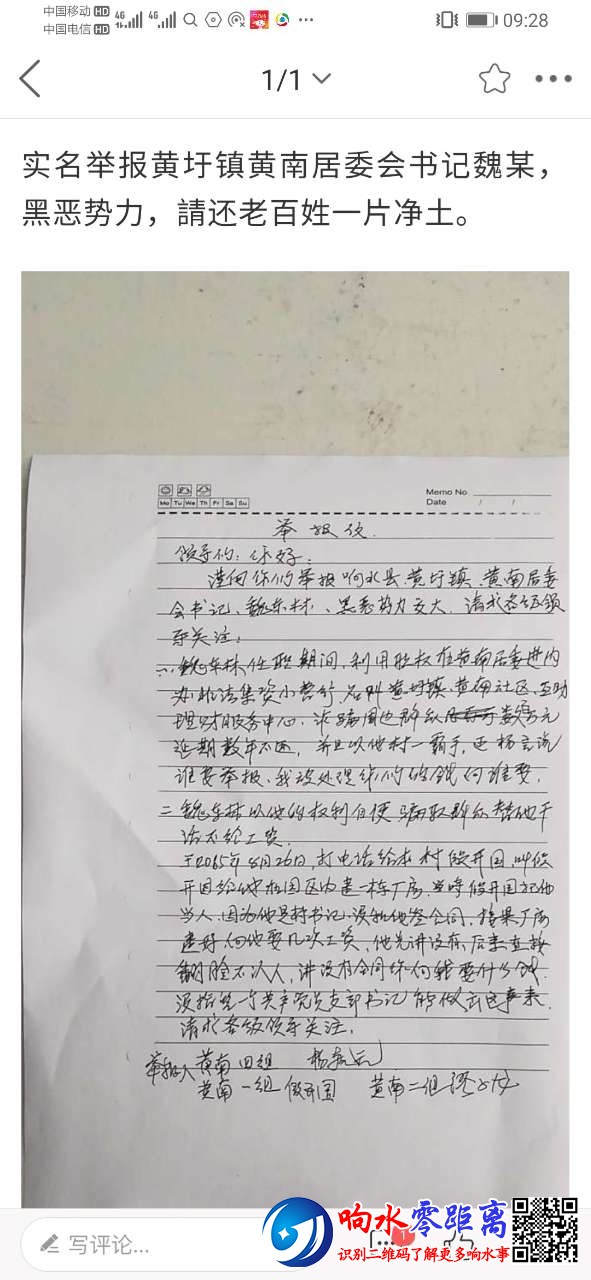 中国移动 HD 4G 4G 09:28
中国电信 HD
1/1
实名举报黄圩镇黄南居委会书记魏某，
黑恶势力，請还老百姓一片净土。
Memo No
Mo Tu We Th Fr Sa Su
Date / /
举报信
领导们：你好：
准向你们举报响水县黄圩镇黄南居委
会书记、魏东林、黑恶势力文大、请求各级领
导关注：
一、魏东林任职期间，利用职权在黄南居委进内
办非法集资小营行，名叫黄圩镇、黄南社区、互助
理财服务中心，周边群众 数 元
延期数年不还，并且以他村一霸手，还扬言说
谁要举报、我被处理 你们的钱向谁要。
二、魏东林以他的权利自便骗取群众替他干
活不给工资。
于2065年8月26日，打电话给本村 开国，叫
开国给他在园区内建一栋厂房，当时 开国
当人，因为他是村书记，没和他签合同，结果厂房
建好，向他要几次工资，他先讲没有，后来直接
翻脸不认人，讲没有合同你向我要什么钱
没想 一个共产党员支部书记能做出这事来
请求各级领导关注。
举报人 黄南四组 杨
黄南一组 开国 黄南二组
写评论...
1
响水零距离
识别二维码了解更多响水事